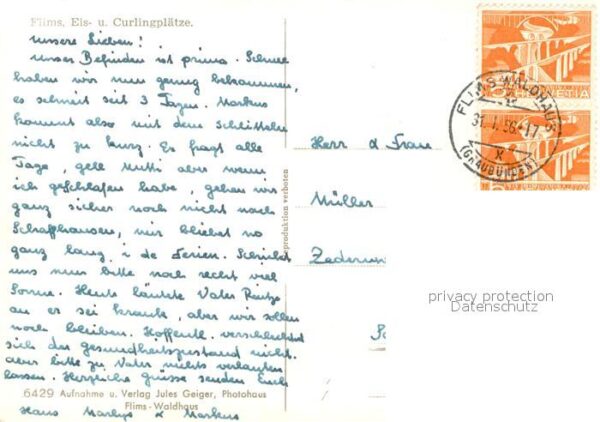 Flims, Eis- u. Curlingplätze.
Unsere Lieben!
Unser Befinden ist prima. Schnee
haben wir nun genug bekommen,
es schneit seit 3 Tagen. Markus
kommt also mit dem Schlitteln
nicht zu kurz. Er fragt alle
Tage, gell Mutti aber wenn
ich geschlafen habe, gehen wir
ganz sicher noch nicht nach
Schaffhausen, wir bleibed no
ganz lang i de Ferien. Schickt
uns nur bitte noch recht viel
Sonne. Heute läutete Vater
an er sei krank, aber wir sollen
noch bleiben. Hoffentl. verschlechtert
sich der Gesundheitszustand nicht.
aber bitte zu Vater nichts verlauten
lassen. Herzliche Grüsse senden Euch
6429 Aufnahme u. Verlag Jules Geiger, Photohaus
Flims-Waldhaus
Hans Marlys & Markus
Reproduktion verboten
Herr & Frau
Müller
FLIMS WALDHAUS
31.1.56-17
X
(GRAUBÜNDEN)
HELVETIA
privacy protection
Datenschutz